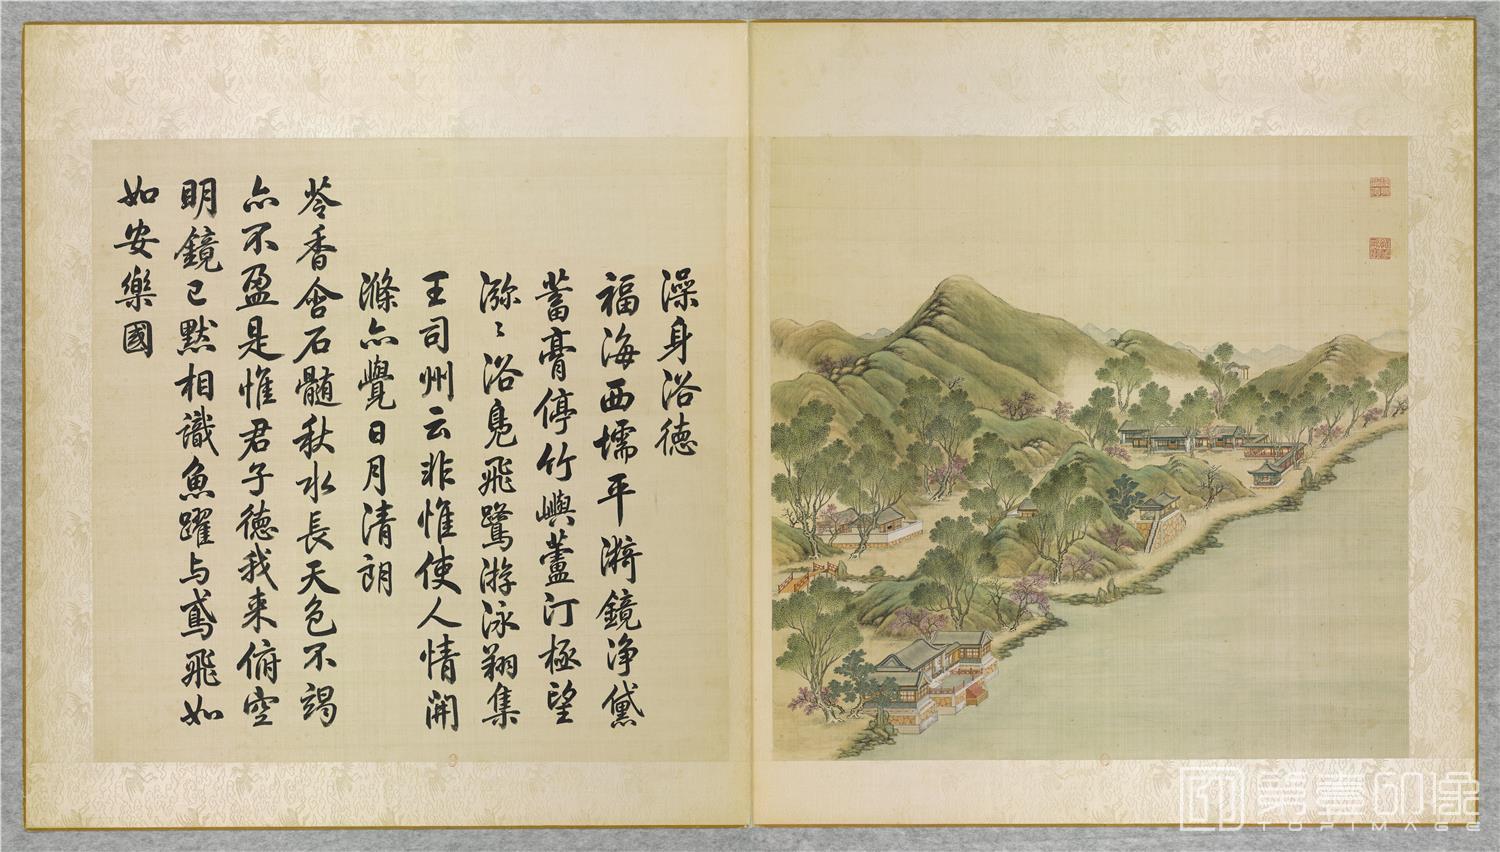 澡身浴德
福海西壖平漪鏡淨黛
蓄膏停竹嶼蘆汀極望
瀰〻浴鳧飛鷺游泳翔集
王司州云非惟使人情開
滌亦覺日月清朗
苓香含石髓秋水長天色不竭
亦不盈是惟君子德我来俯空
明鏡已默相識魚躍与鳶飛如
如安樂國
TOPIMAGE